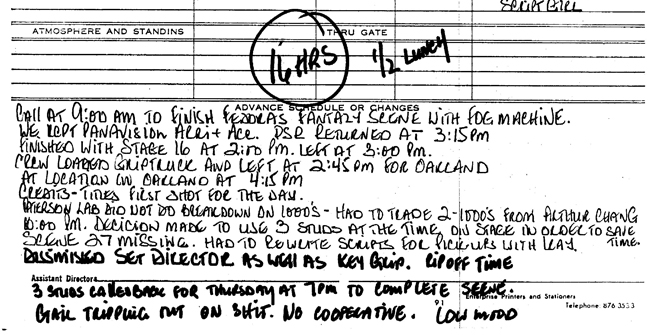 SCRIPT GIRL
ATMOSPHERE AND STANDINS
THRU GATE
16 HRS
1/2 LUNCH
ADVANCE SCHEDULE OR CHANGES
CALL AT 9:00 AM TO FINISH FEDORAS FANTAZY SCENE WITH FOG MACHINE.
WE KEPT PANAVISION ARRI + ACC. DSR RETURNED AT 3:15 PM
FINISHED WITH STAGE 16 AT 2:00 PM. LEFT AT 3:00 PM.
CREW LOADED GRIPTRUCK AND LEFT AT 2:45 PM FOR OAKLAND
AT LOCATION IN OAKLAND AT 4:15 PM
CREDITS - TITLES FIRST SHOT FOR THE DAY.
PATERSON LAB DID NOT DO BREAKDOWN ON 1000'S - HAD TO TRADE 2-1000'S FROM ARTHUR CHANG
10:00 PM. DECICION MADE TO USE 3 STUDS AT THE TIME, ON STAGE IN ORDER TO SAVE TIME.
SCENE 27 MISSING. HAD TO REWRITE SCRIPTS FOR PICKUPS WITH
DISSMISSED SET DIRECTOR AS WELL AS KEY GRIP. RIPOFF TIME
Assistant Directors
3 STUDS CALLED BACK FOR THURSDAY AT 7PM TO COMPLETE SCENE.
Enterprise Printers and Stationers
Telephone: 876-3533
GAIL TRIPPING OUT ON SHIT. NO COOPERATIVE. LOW MOOD